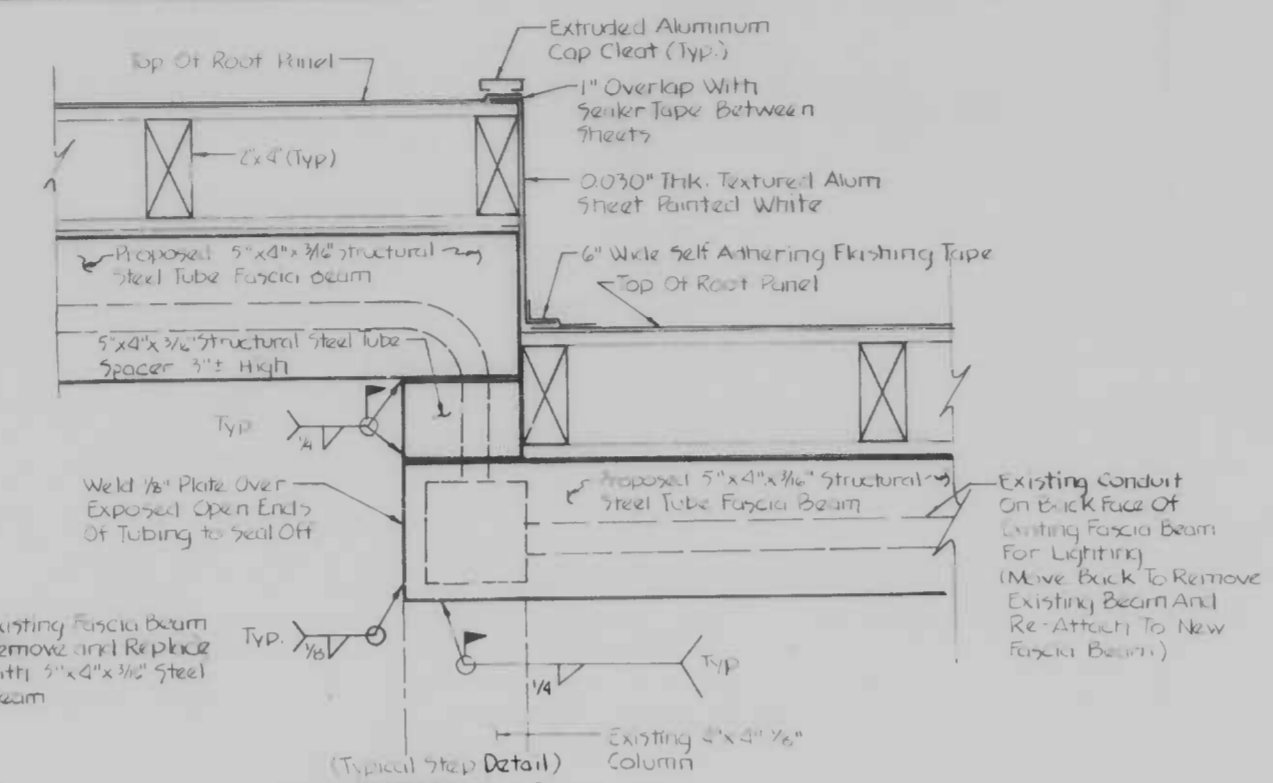 Extruded Aluminum
Cap Cleat (Typ.)
Top Of Roof Panel
1" Overlap With
Sealer Tape Between
Sheets
2"x4" (Typ)
0.030" Thk. Textured Alum
Sheet Painted White
Proposed 5"x4"x3/16" Structural
Steel Tube Fascia Beam
6" Wide Self Adhering Flashing Tape
Top Of Roof Panel
5"x4"x3/16" Structural Steel Tube
Spacer 3"± High
Typ
1/4
Weld 1/8" Plate Over
Exposed Open Ends
Of Tubing to Seal Off
Proposed 5"x4"x3/16" Structural
Steel Tube Fascia Beam
Existing Conduit
On Back Face Of
Existing Fascia Beam
For Lighting
(Move Back To Remove
Existing Beam And
Re-Attach To New
Fascia Beam)
xisting Fascia Beam
emove and Replace
ith 5"x4"x3/16" Steel
eam
Typ.
1/8
1/4
Typ
Existing 4"x4"
Column
(Typical Step Detail)